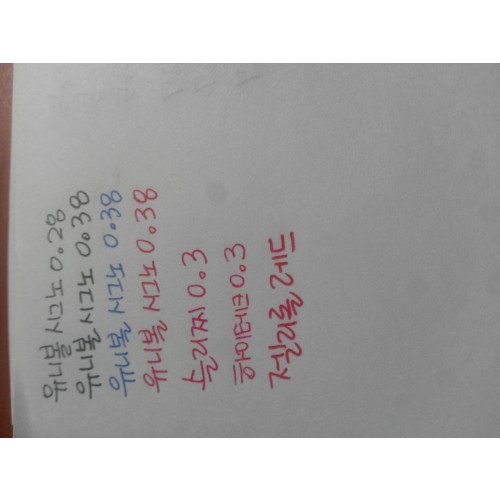 유니볼 시그노 0.28
유니볼 시그노 0.38
유니볼 시그노 0.38
유니볼 시그노 0.38
슬리찌 0.3
하이테크 0.3
젤리롤 레드